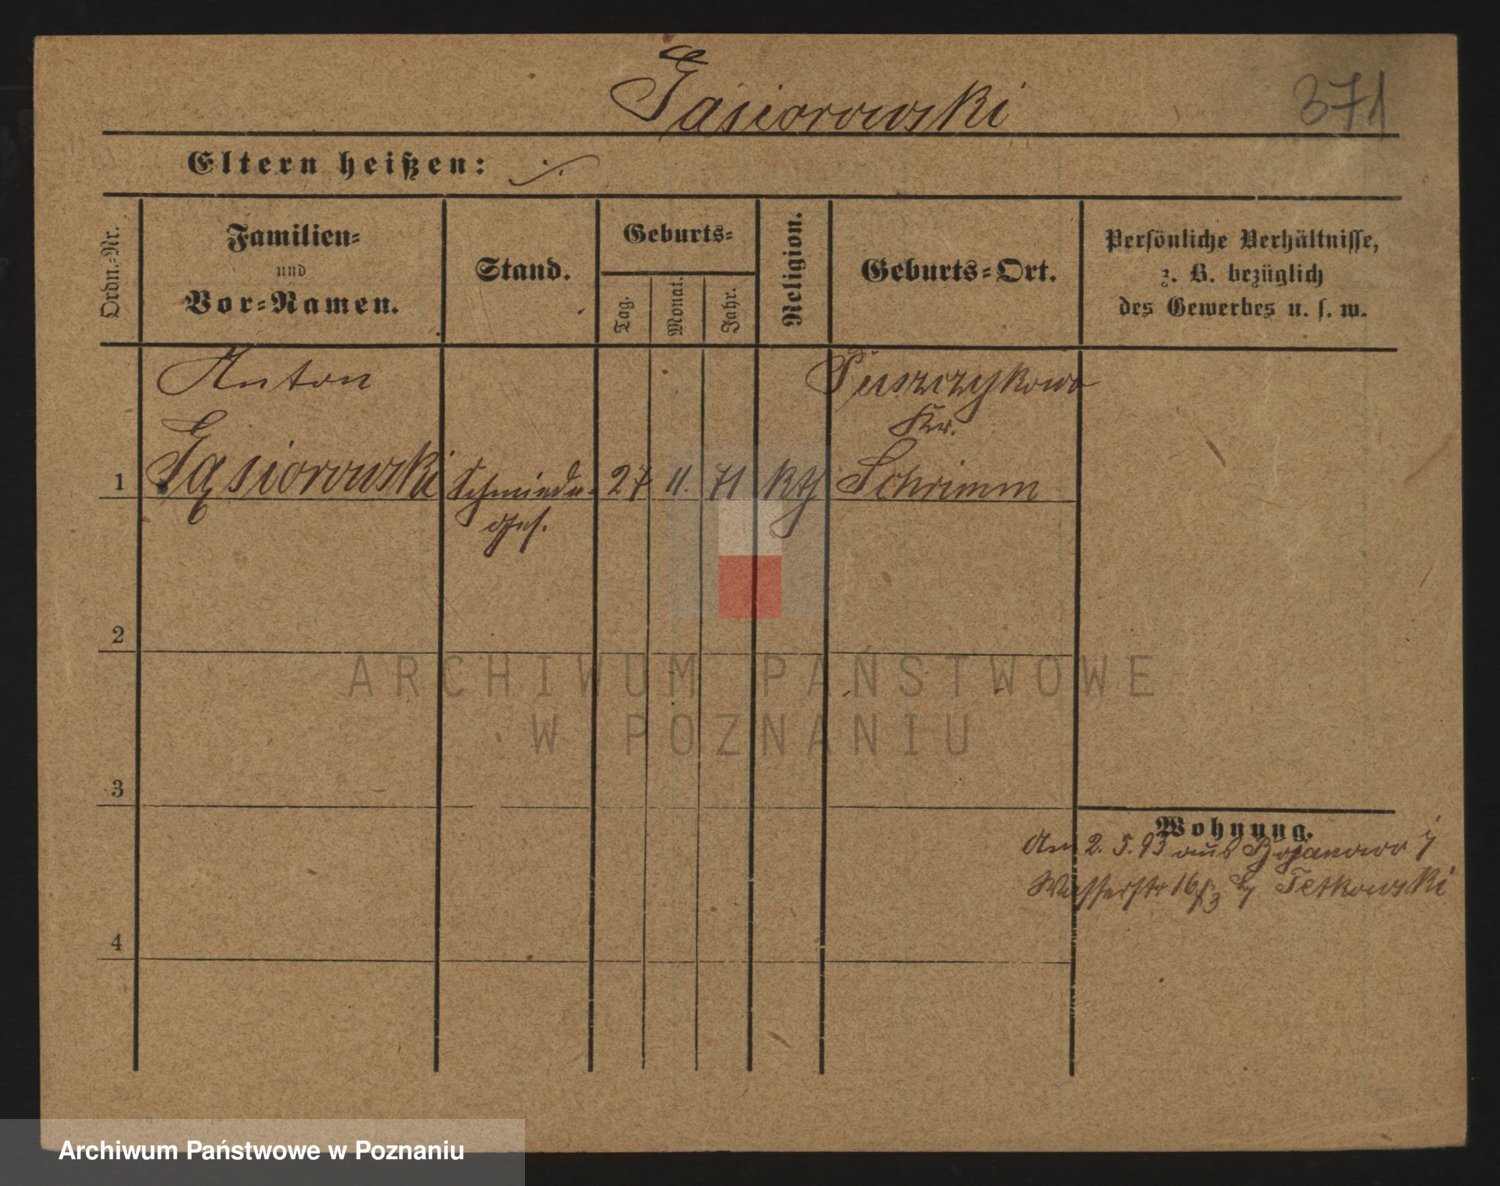 Gąsiorowski
371
Eltern heißen: ./.
Ordn.-Nr.
Familien-
und
Vor-Namen.
Stand.
Geburts-
Tag.
Monat.
Jahr.
Religion.
Geburts-Ort.
Persönliche Verhältnisse,
z. B. bezüglich
des Gewerbes u. s. w.
Anton
Gąsiorowski
1
Schmiede-
ges.
27
11.
71
kth
Puszczykowo
Kr.
Schrimm
2
3
4
Wohnung.
Am 2. 5. 93 aus Bojanowo
Wasserstr 16/3 b/ Tetkowski
ARCHIWUM PAŃSTWOWE
W POZNANIU
Archiwum Państwowe w Poznaniu